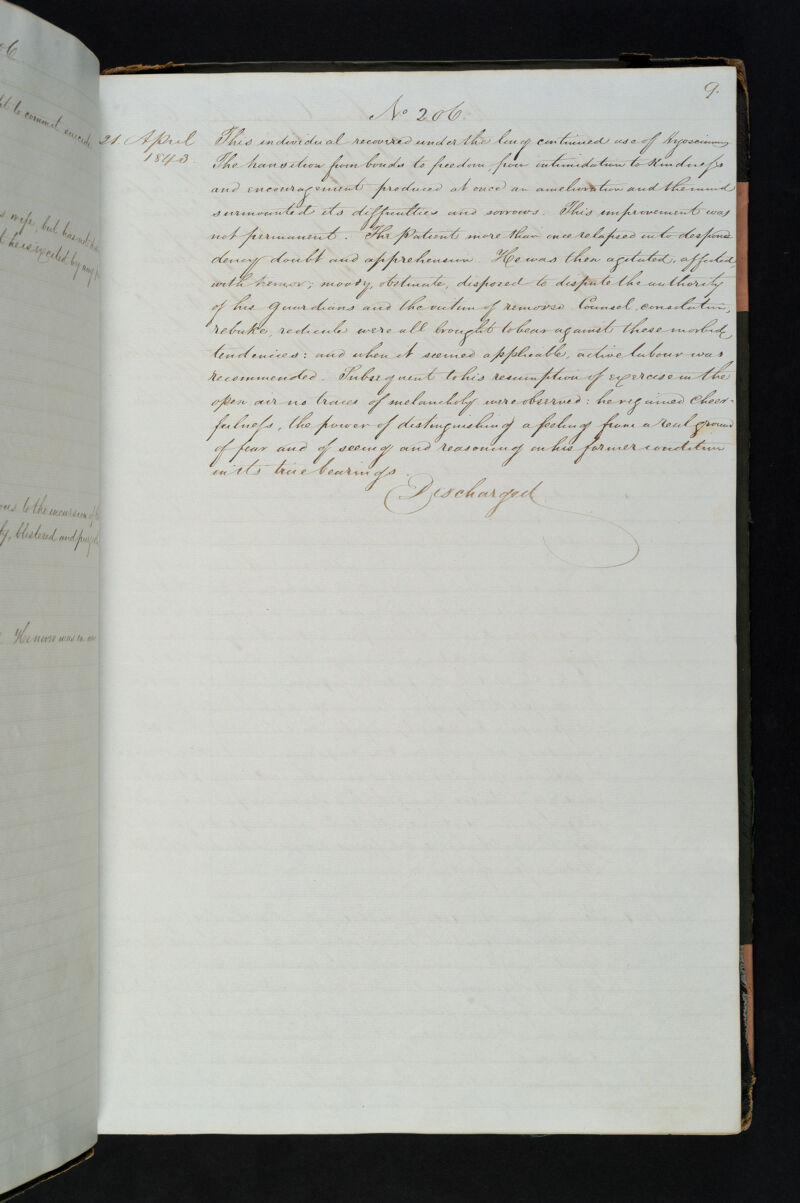 9.
No 206.
21. April
1843.
This individual recovered under the long continued use of hyoscimus
The transition from bonds to freedom, from intimidation to Kindness
and encouragement produced at once an amelioration and the mind
surmounted its difficulties and sorrows. This improvement was
not permanent. The Patient more than once relapsed into despon
dency doubt and apprehension. He was then agitated, affected
with tremor; moody, obstinate, disposed to dispute the authority
of his guardians and the victim of remorse. Counsel, consolation,
rebuke, redicule were all brought to bear against these morbid
tendencies: and when it seemed applicable, active labour was
recommended. Subsequent to his resumption of exercise in the
open air no traces of melancholy were observed: he regained cheer-
fulness, the power of distinguishing a feeling from a real ground
of fear and of seeing and reasoning on his former condition
in its true bearings.
Discharged
06
to commit suicide
wife, but has not
he is excited by any
to the incursion of
blistered and purged
He never was in